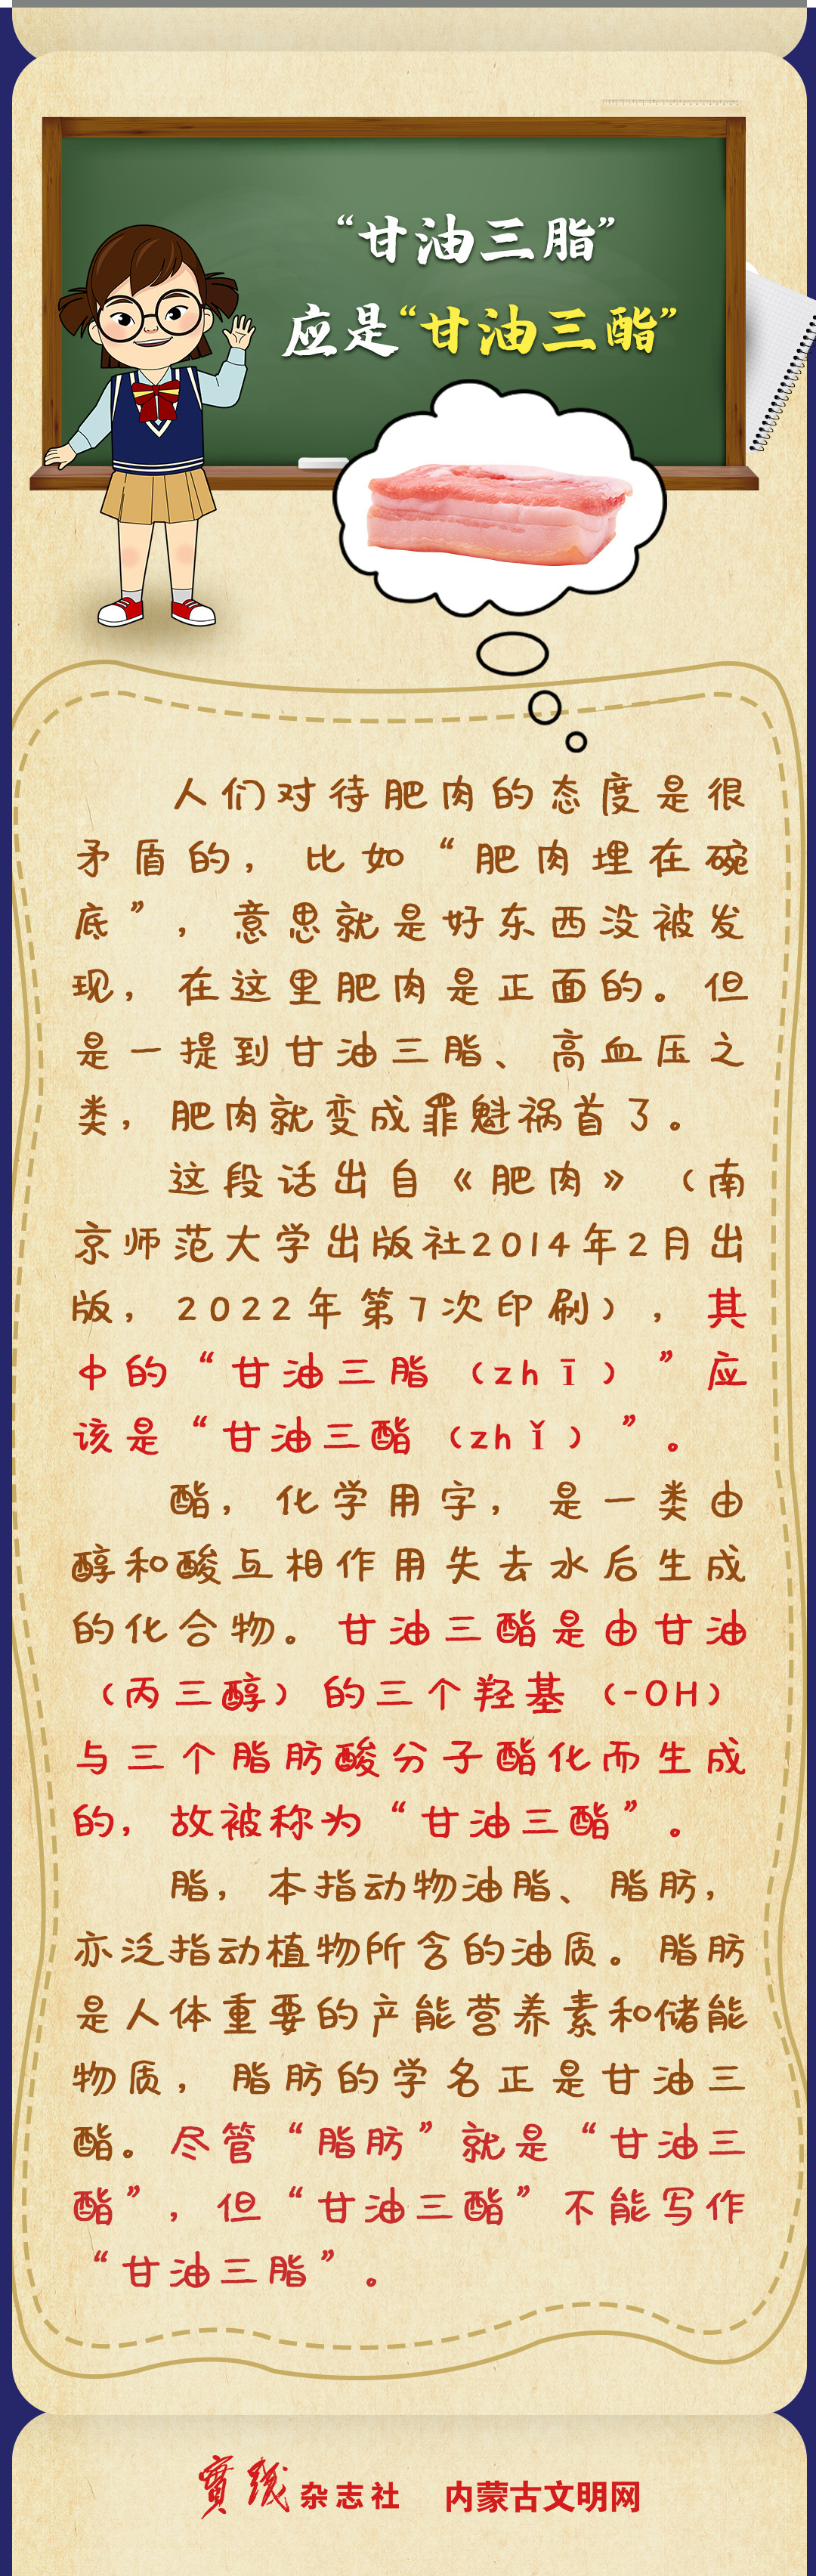 “甘油三脂”
应是“甘油三酯”
人们对待肥肉的态度是很
矛盾的，比如“肥肉埋在碗
底”，意思就是好东西没被发
现，在这里肥肉是正面的。但
是一提到甘油三脂、高血压之
类，肥肉就变成罪魁祸首了。
这段话出自《肥肉》（南
京师范大学出版社2014年2月出
版，2022年第7次印刷），其
中的“甘油三脂（zhī）”应
该是“甘油三酯（zhǐ）”。
酯，化学用字，是一类由
醇和酸互相作用失去水后生成
的化合物。甘油三酯是由甘油
（丙三醇）的三个羟基（-OH）
与三个脂肪酸分子酯化而生成
的，故被称为“甘油三酯”。
脂，本指动物油脂、脂肪，
亦泛指动植物所含的油质。脂肪
是人体重要的产能营养素和储能
物质，脂肪的学名正是甘油三
酯。尽管“脂肪”就是“甘油三
酯”，但“甘油三酯”不能写作
“甘油三脂”。
實践杂志社 内蒙古文明网